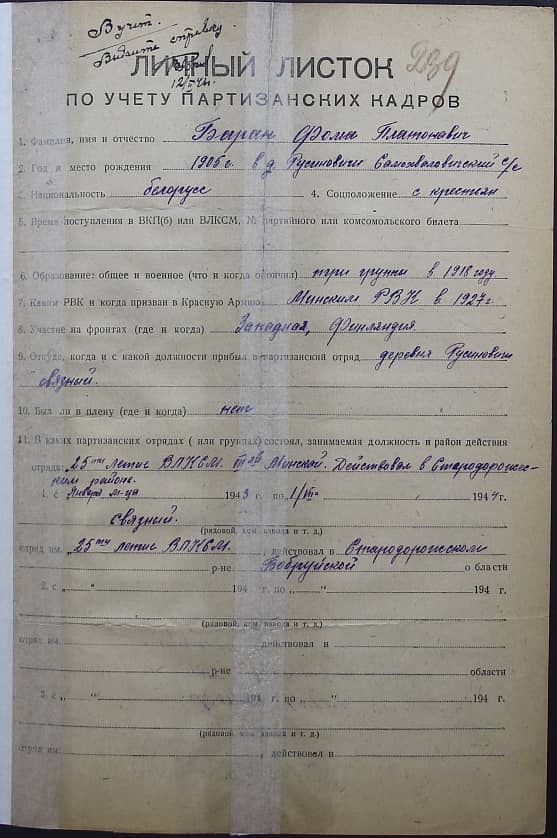 В учет.
Выдайте справку
239
ЛИЧНЫЙ ЛИСТОК
ПО УЧЕТУ ПАРТИЗАНСКИХ КАДРОВ
1. Фамилия, имя и отчество Баран Фома Платонович
2. Год и место рождения 1905 г. в д. Русиновичи Самохваловичский с/с
3. Национальность белорусс 4. Соцположение с крестьян
5. Время поступления в ВКП(б) или ВЛКСМ, № партийного или комсомольского билета
6. Образование: общее и военное (что и когда окончил) три группы в 1918 году
7. Каким РВК и когда призван в Красную Армию Минским РВК в 1927 г.
8. Участие на фронтах (где и когда) Западная, Финляндия.
9. Откуда, когда и с какой должности прибыл в партизанский отряд деревня Русиновичи
связный.
10. Был ли в плену (где и когда) нет
11. В каких партизанских отрядах ( или группах) состоял, занимаемая должность и район действия
отряда: 25ти летие ВЛКСМ. Минской. Действовал в Стародорожс-
ком районе.
1. с Января м-ца 1943 г. по 1/VII- 1944 г.
связный.
(рядовой, ком. взвода и т. д.)
отряд им. „25ти летие ВЛКСМ. , действовал в Стародорожском
р-не Бобруйской области
2. с „ “ 194 г. по „ “ 194 г.
(рядовой, ком. взвода и т. д.)
отряд им. действовал в
р-не области
3. с „ “ 194 г. по „ “ 194 г.
(рядовой, ком. взвода и т. д.)
отряд им. , действовал в